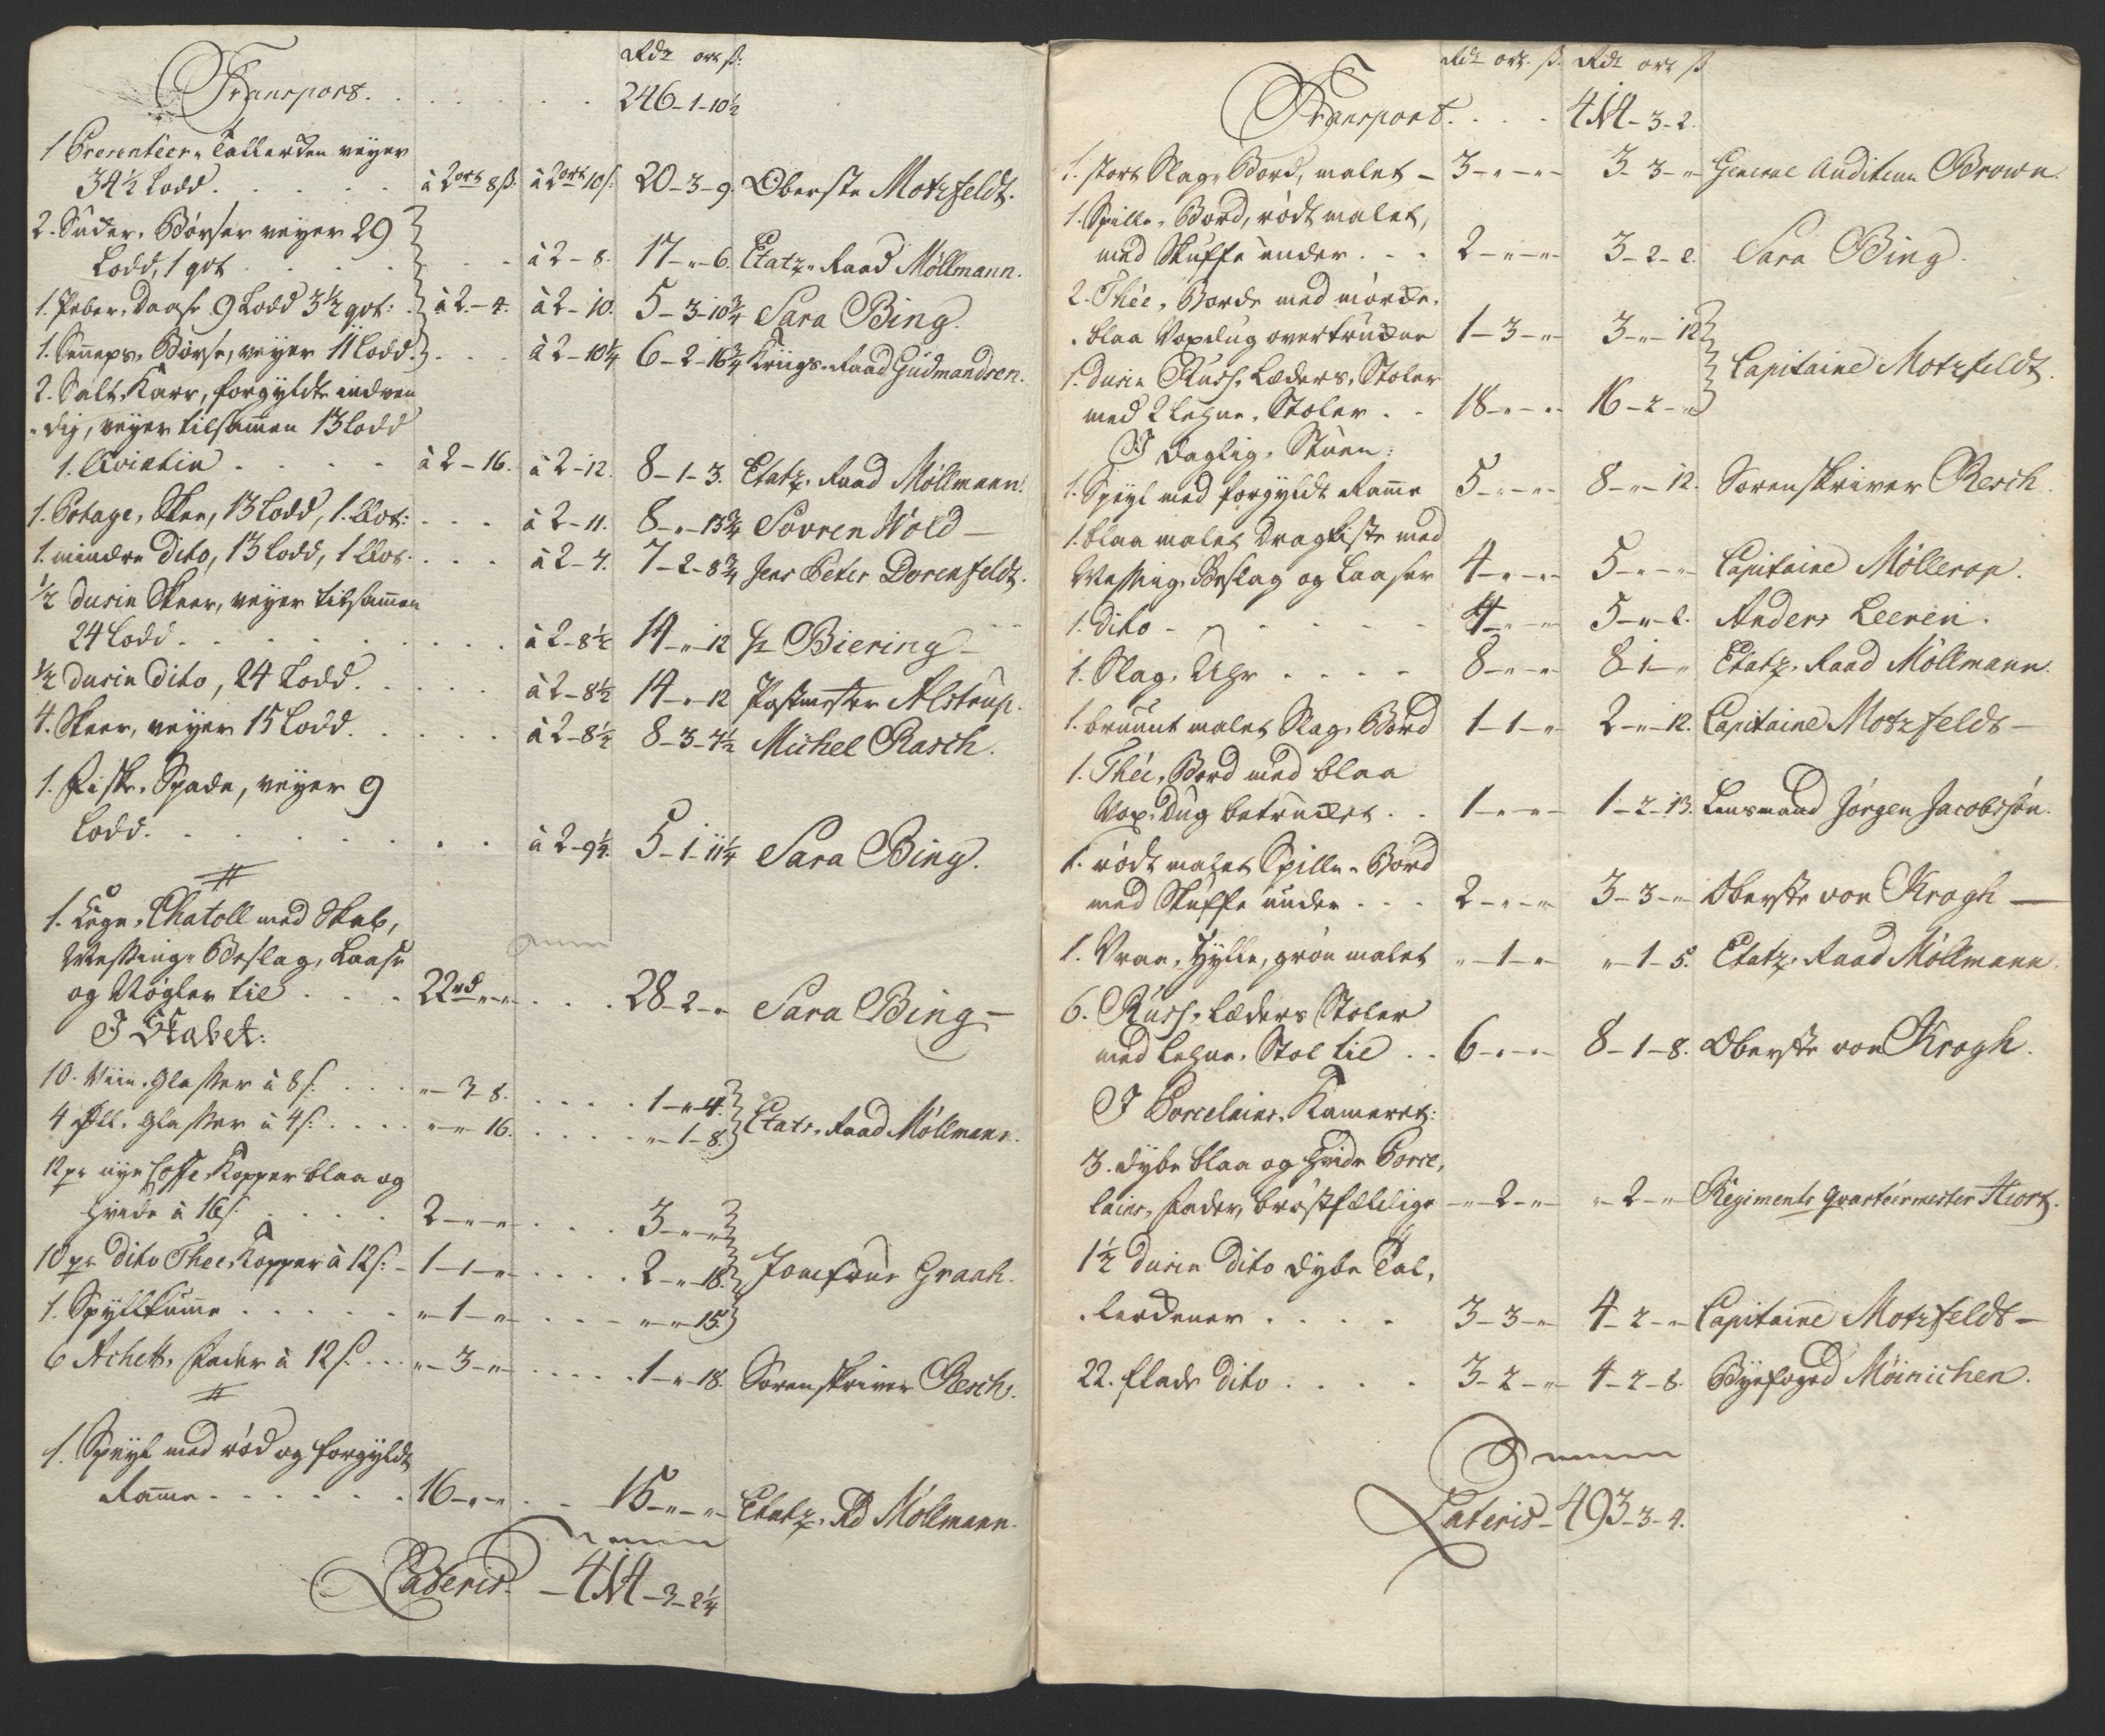 Rdr ort ß:
Transport. . . . . . . 246-1-10½
1 Presenteer-Tallerken veyer
34½ Lodd. . . . . à 2 ort 8 ß. à 2 ort 10 ß. 20-3-9. Oberste Motzfeldt.
2. Suder-Bøsser veyer 29
Lodd, 1 qvt . . . . . à 2-8. 17-"-6. Etatz-Raad Møllmann.
1. Peber-Daase 9 Lodd 3½ qvt: à 2-4. à 2-10. 5-3-10¾ Sara Bing.
1. Senneps-Bøsse, veyer 11 Lodd. . . . à 2-10¼ 6-2-16¾ Kriigs-Raad Gudmandsen.
2. Salt-Karr, forgyldte indven
-dig, veyer tilsammen 13 Lodd
1. Qvintin . . . . à 2-16. à 2-12. 8-1-3. Etatz-Raad Møllmann.
1. Potage-Skee, 13 Lodd, 1. Qvt: . . . à 2-11. 8-"-13¾ Søvren Wold—
1. mindre dito, 13 Lodd, 1 Qvt. . . . à 2-4. 7-2-8¾ Jens Peter Dorenfeldt.
½ dusin Skeer, veyer tilsammen
24 Lodd. . . . . . . à 2-8½ 14-"-12 Hr Biering—
½ dusin dito, 24 Lodd. . . . . à 2-8½ 14-"-12 Postmester Alstrup.
4. Skeer, veyer 15 Lodd. . . . . à 2-8½ 8-3-7½ Michel Rasch.
1. Fiske-Spade, veyer 9
Lodd. . . . . . . à 2-9¼. 5-1-11¼ Sara Bing.
1. Eege-Chatoll med Skab,
Messing-Beslag, Laase
og Nøgler til . . . 22 rd "-" . . . 28-2-" Sara Bing—
I Skabet:
10. Viin-Glasser à 8 ß. . . "-3-8. . . . . 1-"-4.
4 Øll-Glasser à 4 ß. . . . "-"-16. . . . . "-1-8. Etats-Raad Møllmann.
12 pr nye Coffe-Kopper blaa og
hvide à 16 ß. . . . . 2-"-" . . . 3-"-"
10 pr dito Thee-Kopper à 12 ß. - 1-1-" . . . . 2-"-18. Jomfrue Graah.
1. Spyllkumme . . . . . "-1-" . . . "-"-15.
6 Achett-Fader à 12 ß. . . "-3-" . . . . . 1-"-18. Sorenskriver Resch.
1. Speyl med rød og forgyldt
Ramme . . . . . . 16-"-" . . 15-"-" Etatz-Rd Møllmann.
Lateris. - 414-3-2¼
Rdr ort. ß. Rdr ort ß
Transport. . . . 414-3-2.
1. stort Slag-Bord, malet - 3-"-" 3-3-" General Auditeur Brown.
1. Spille-Bord, rødt malet,
med Skuffe under. . . 2-"-" 3-2-2. Sara Bing.
2. Thée-Borde med mörke-
-blaa Voxdug overtrukne 1-3-" 3-"-12
1. dusin Russ-Læders-Stoler
med 2 Lehne-Stoler . . 18-"-" 16-2-" Capitaine Motzfeldt.
I Daglig-Stuen:
1. Speyl med forgyldt Ramme 5-"-" 8-"-12. Sorenskriver Resch.
1. blaa malet Dragkiste med
Messing-Beslag og Laaser 4-"-" 5-"-" Capitaine Møllerop.
1. dito - . . . . . 4-"-" 5-"-2. Anders Leeren.
1. Slag-Uhr . . . . 8-"-" 8-1-" Etatz-Raad Møllmann.
1. bruunt malet Slag-Bord 1-1-" 2-"-12. Capitaine Motzfeldt—
1. Thée-Bord med blaa
Vox-Dug betrukket . . 1-"-" 1-2-13. Lensmand Jørgen Jacobssøn.
1. rødt malet Spille-Bord
med Skuffe under . . . 2-"-" 3-3-" Oberste von Krogh—
1. Vraa-Hylle, grøn malet "-1-" "-1-5. Etatz-Raad Møllmann.
6. Russ-Læders Stoler
med Lehne-Stol til . . 6-"-" 8-1-8. Oberste von Krogh.
I Porcelains-Kameret:
3. dybe blaa og hvide Porce-
lains-Fader, brøstfældige "-2-" "-2-" Regiments Qvarteermester Hiort.
1½ dusin dito dybe Tal-
-lerkener . . . . 3-3-" 4-2-" Capitaine Motzfeldt—
22. flade dito . . . . 3-2-" 4-2-8. Byefoged Möinichen.
Lateris - 493-3-4.